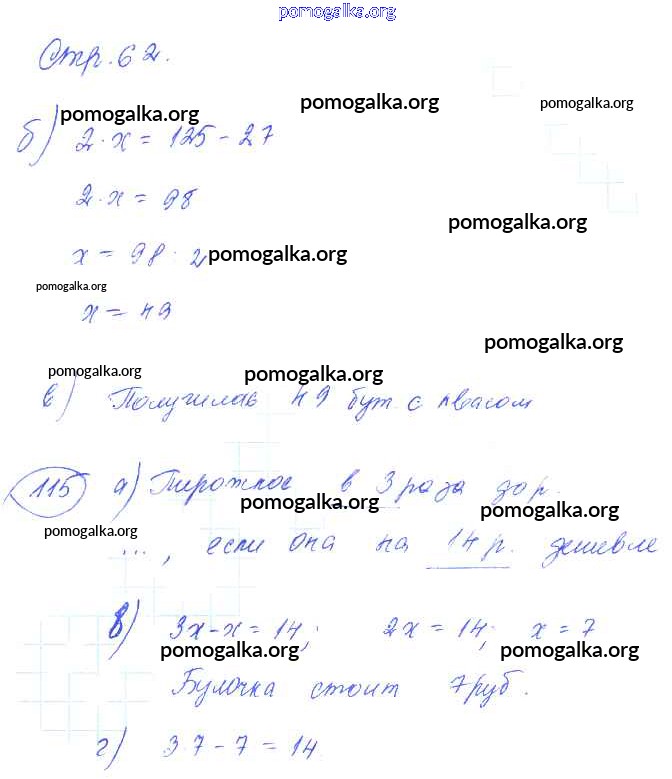 pomogalka.org
Стр. 62.
pomogalka.org pomogalka.org pomogalka.org
б) 2·x = 125 - 27
2·x = 98
pomogalka.org
x = 98 : 2 pomogalka.org
pomogalka.org
x = 49
pomogalka.org
pomogalka.org pomogalka.org
в) Получилось 49 бут. с квасом
115 а) Пирожное в 3 раза дор.
pomogalka.org pomogalka.org
pomogalka.org
..., если она на 14 р. дешевле
в) 3x - x = 14; 2x = 14; x = 7
pomogalka.org pomogalka.org
Булочка стоит 7 руб.
г) 3·7 - 7 = 14